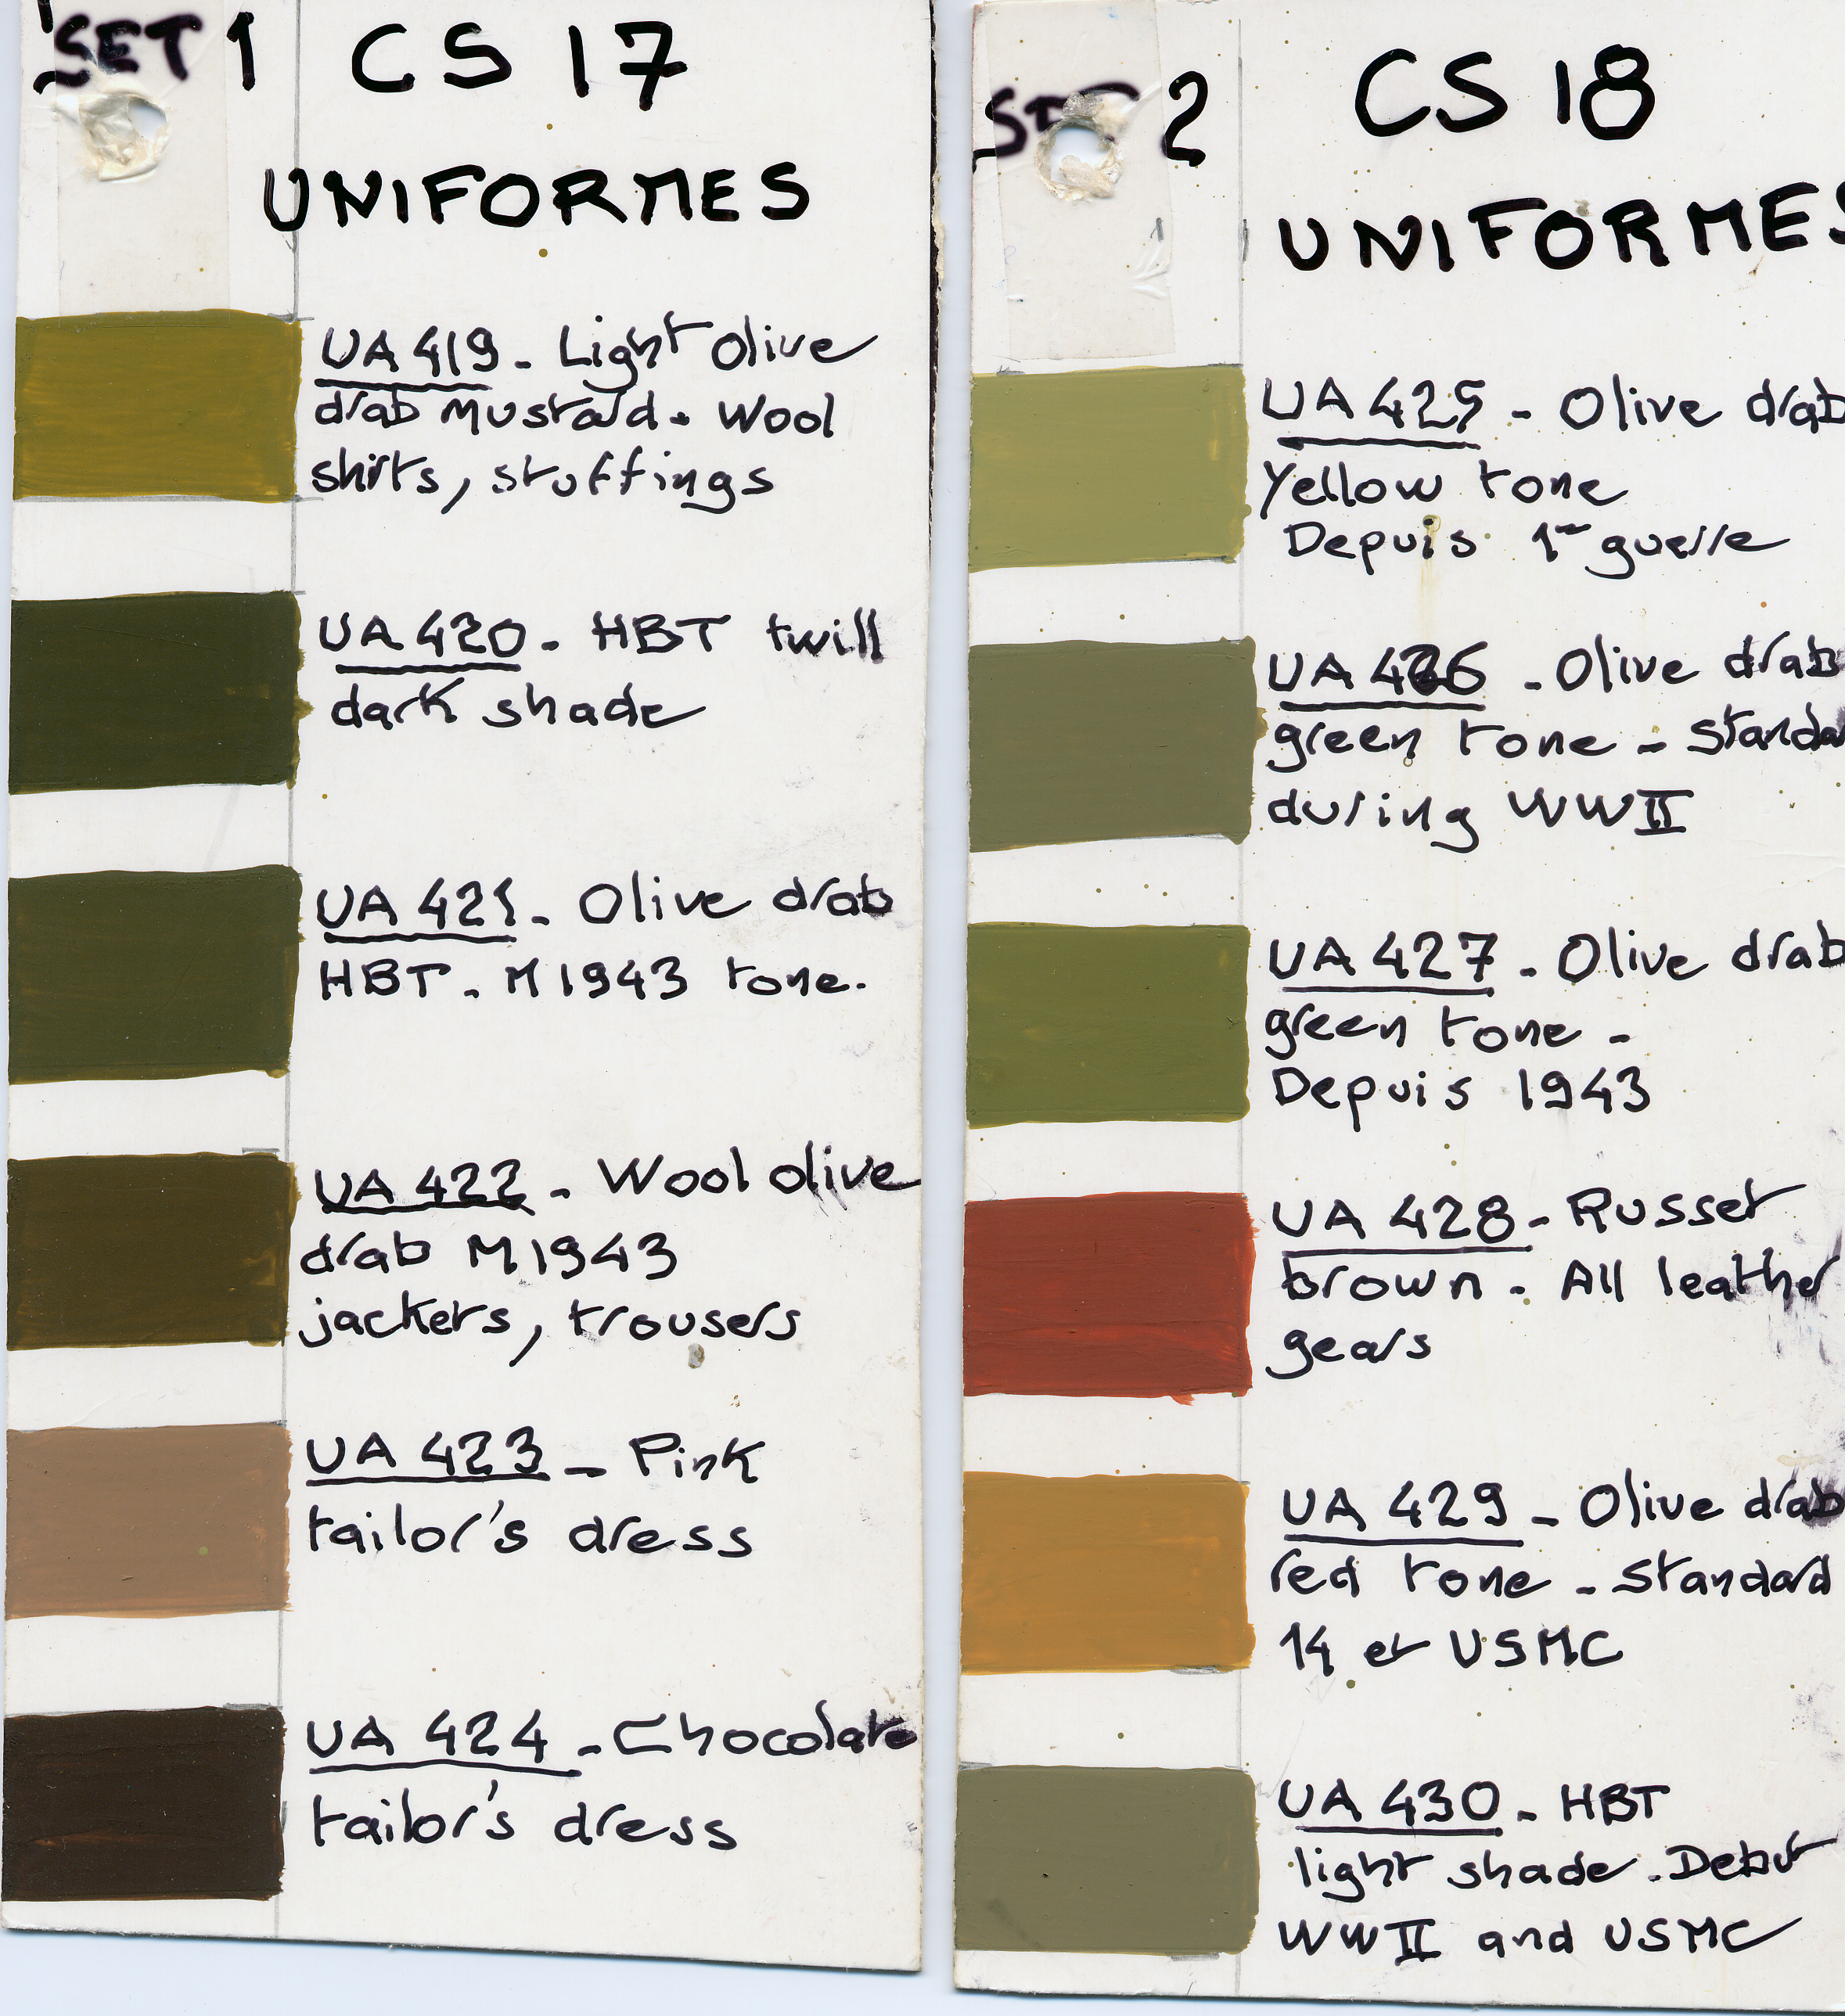 SET 1 CS 17
UNIFORMES
UA 419 - Light Olive
drab mustard. Wool
shirts, stuffings
UA 420 - HBT twill
dark shade
UA 421 - Olive drab
HBT - M1943 tone.
UA 422 - Wool olive
drab M1943
jackets, trousers
UA 423 - Pink
tailor's dress
UA 424 - Chocolate
tailor's dress
SET 2 CS 18
UNIFORMES
UA 425 - Olive drab
Yellow tone
Depuis 1re guerre
UA 426 - Olive drab
green tone - Standa
during WWII
UA 427 - Olive drab
green tone -
Depuis 1943
UA 428 - Russet
brown - All leather
gears
UA 429 - Olive drab
red tone - Standard
14 et USMC
UA 430 - HBT
light shade. Debut
WWII and USMC